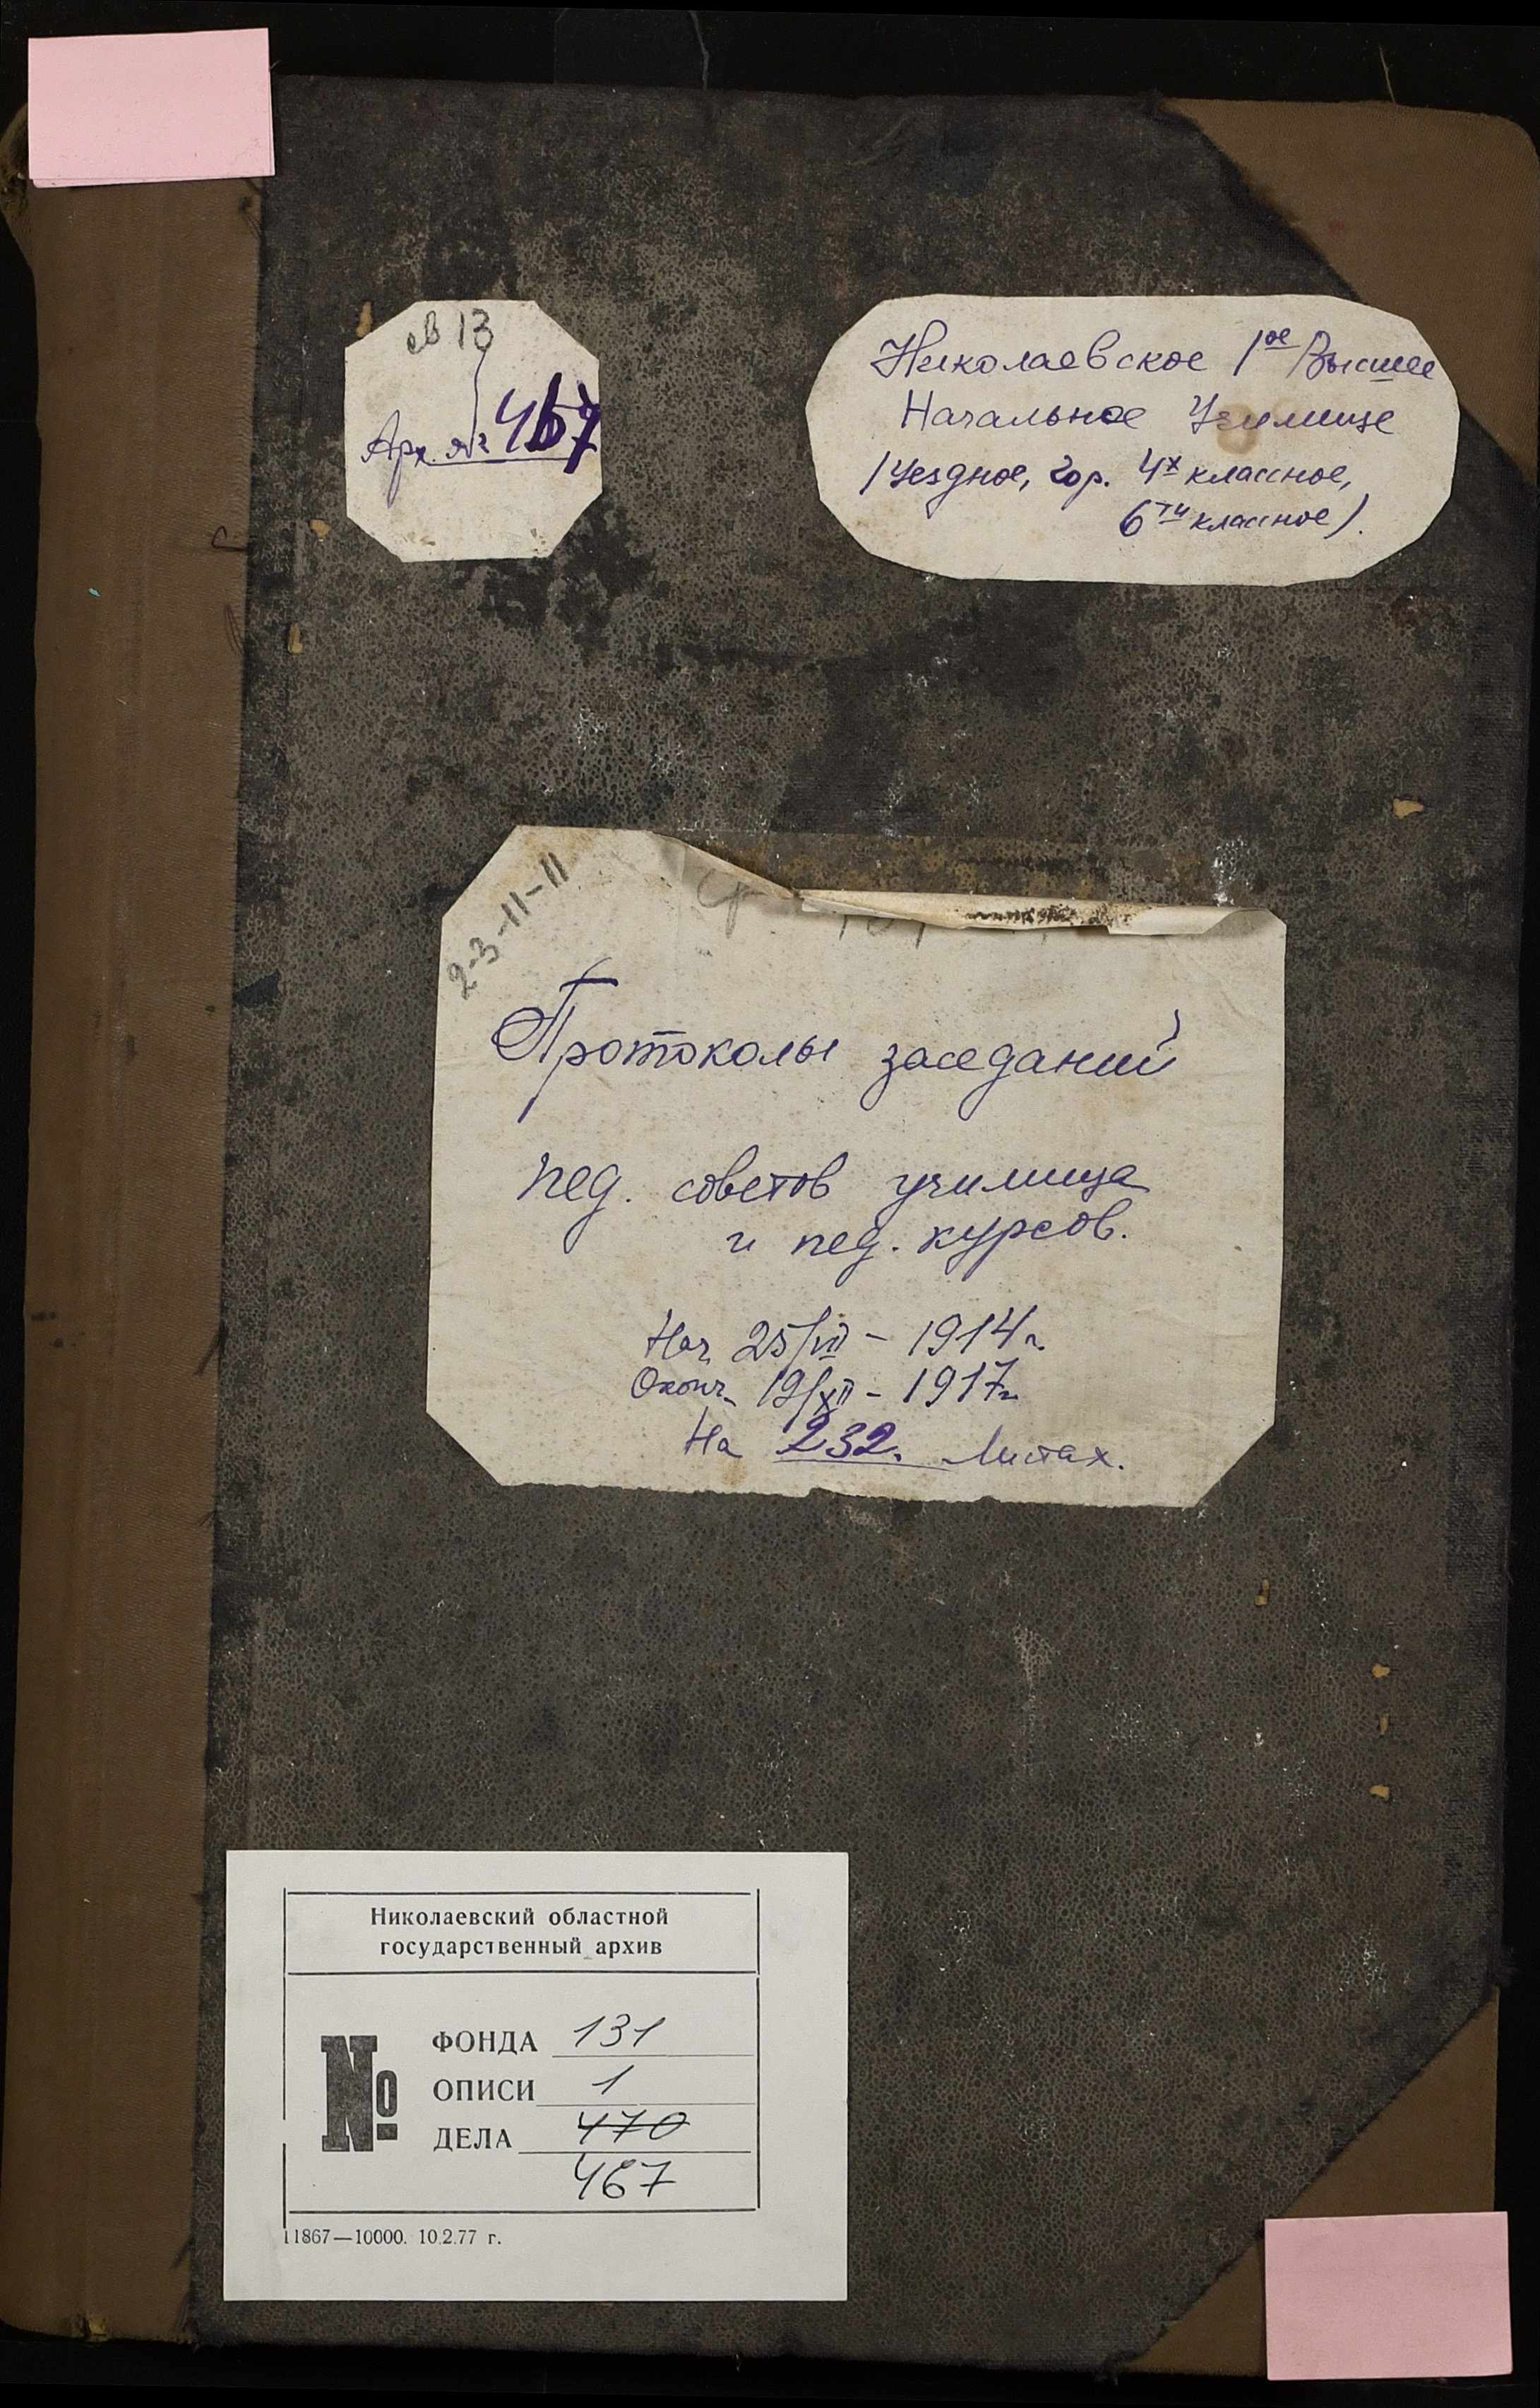 св 13
Арх. № 467
Николаевское 1ое Высшее
Начальное Училище
/Уездное, гор. 4х классное,
6ти классное).
2-3-11-11
Протоколы заседаний
пед. советов училища
и пед. курсов.
Нач. 25/VII - 1914 г.
Оконч. 19/XII - 1917 г.
На 232. Листах.
Николаевский областной
государственный архив
№
ФОНДА 131
ОПИСИ 1
ДЕЛА 470
467
11867—10000. 10.2.77 г.